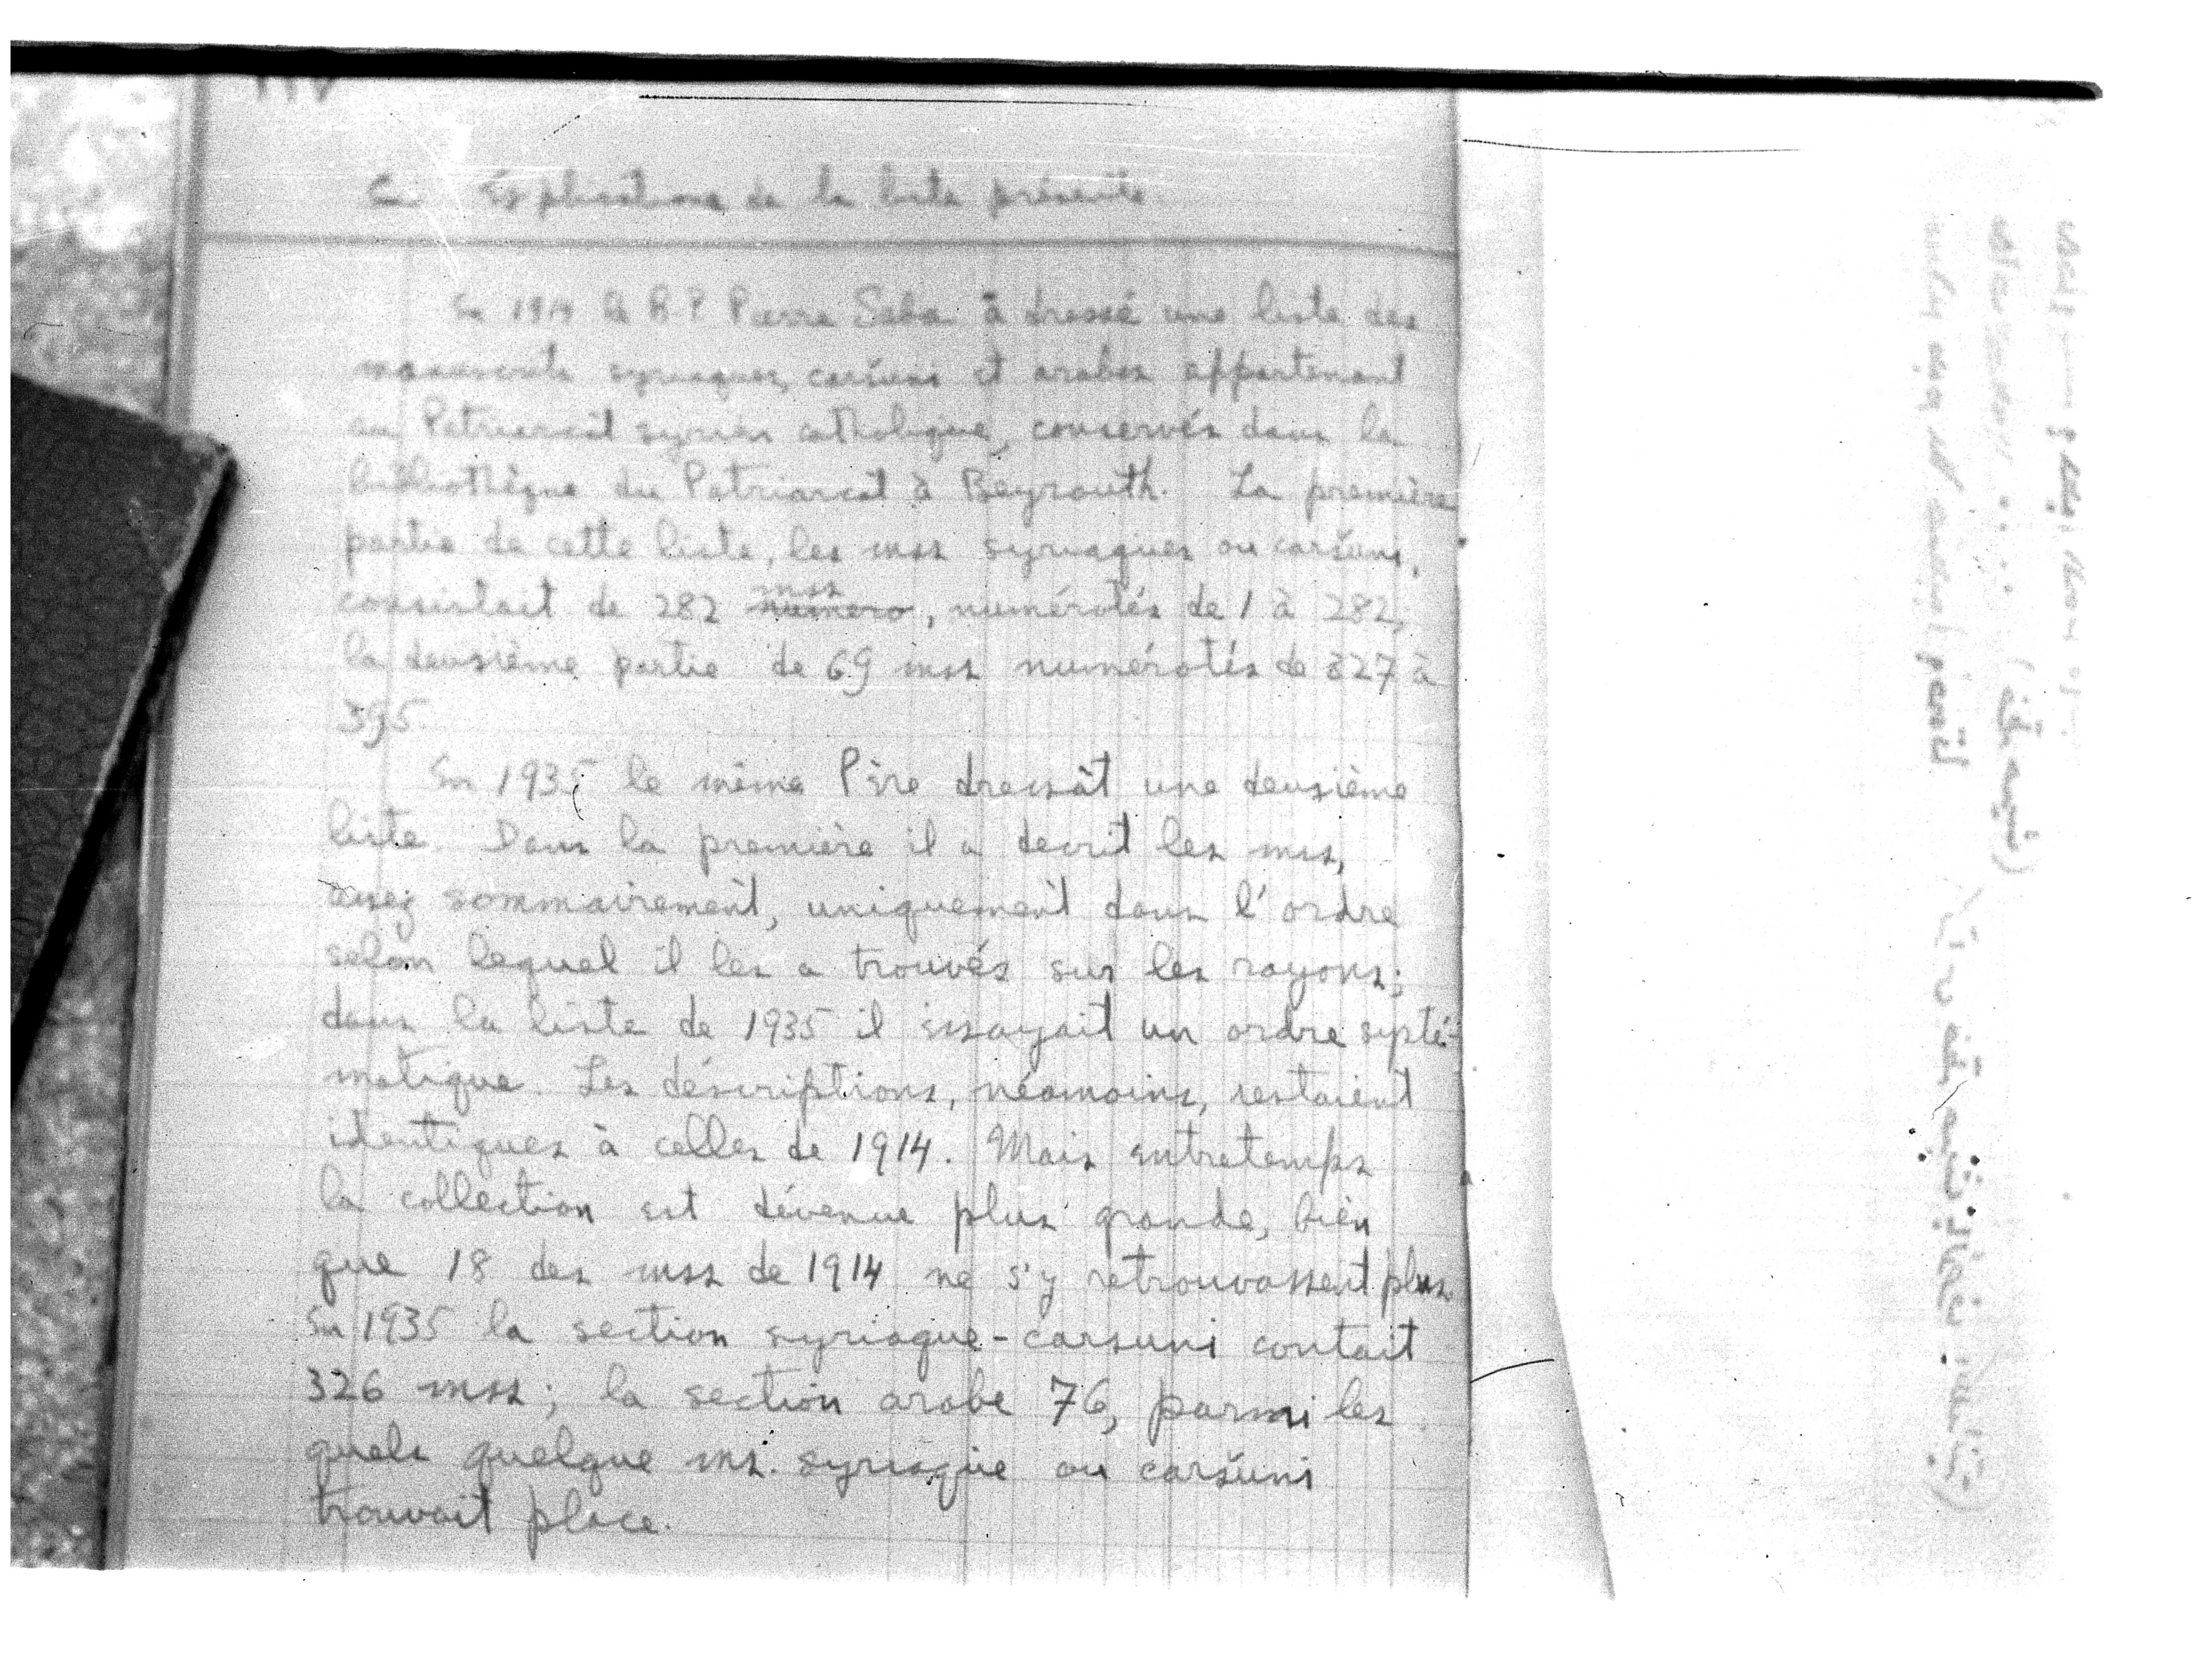 C. Explications de la liste présente.
En 1914 le R.P. Pierre Saba à dressé une liste des
manuscrits syriaques, caršuni et arabes appartenant
au Patriarcat syrien catholique, conservés dans la
bibliothèque du Patriarcat à Beyrouth. La première
partie de cette liste, les mss syriaques ou caršuni,
consistait de 282 mss, numérotés de 1 à 282,
la deusième partie de 69 mss numérotés de 327 à
395.
En 1935 le même Père dressât une deusième
liste. Dans la première il a decrit les mss,
assez sommairement, uniquement dans l'ordre
selon lequel il les a trouvés sur les rayons;
dans la liste de 1935 il essayait un ordre systé-
matique. Les déscriptions, néamoins, restaient
identiques à celles de 1914. Mais entretemps
la collection est dévenue plus grande, bien
que 18 des mss de 1914 ne s'y retrouvassent plus.
En 1935 la section syriaque-carsuni contait
326 mss; la section arabe 76, parmi les
quels quelque ms. syriaque ou caršuni
trouvait place.